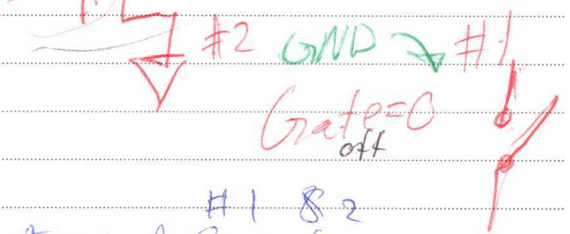 #2 GND #1
Gate=0
off
#1 & 2